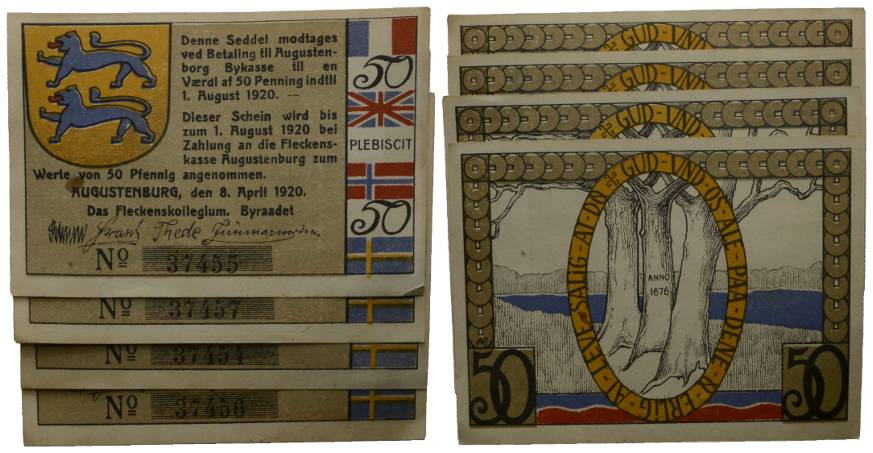 Denne Seddel modtages
ved Betaling til Augusten-
borg Bykasse til en
Værdi af 50 Penning indtil
1. August 1920. —
Dieser Schein wird bis
zum 1. August 1920 bei
Zahlung an die Fleckens-
kasse Augustenburg zum
Werte von 50 Pfennig angenommen.
AUGUSTENBURG, den 8. April 1920.
Das Fleckenskollegium. Byraadet
Frank Thede
No 37455
50
PLEBISCIT
50
No 37457
No 37454
No 37456
GUD-UND-
GUD-UND-
GUD-UND-
GUD-UND-OS-ALE-PAA-DENE-
ERLIG-AT-LEVE-SALIG-AT-DØ
ANNO
1676
50
50